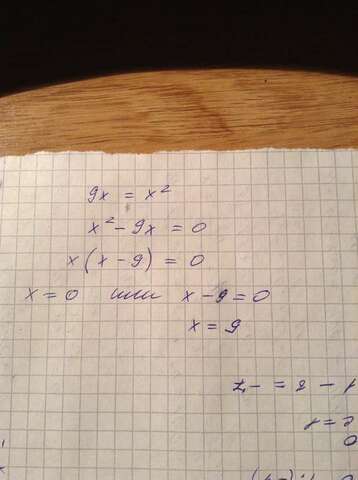 9x = x²
x² - 9x = 0
x(x - 9) = 0
x = 0 или x - 9 = 0
x = 9
1 - 8 = -7